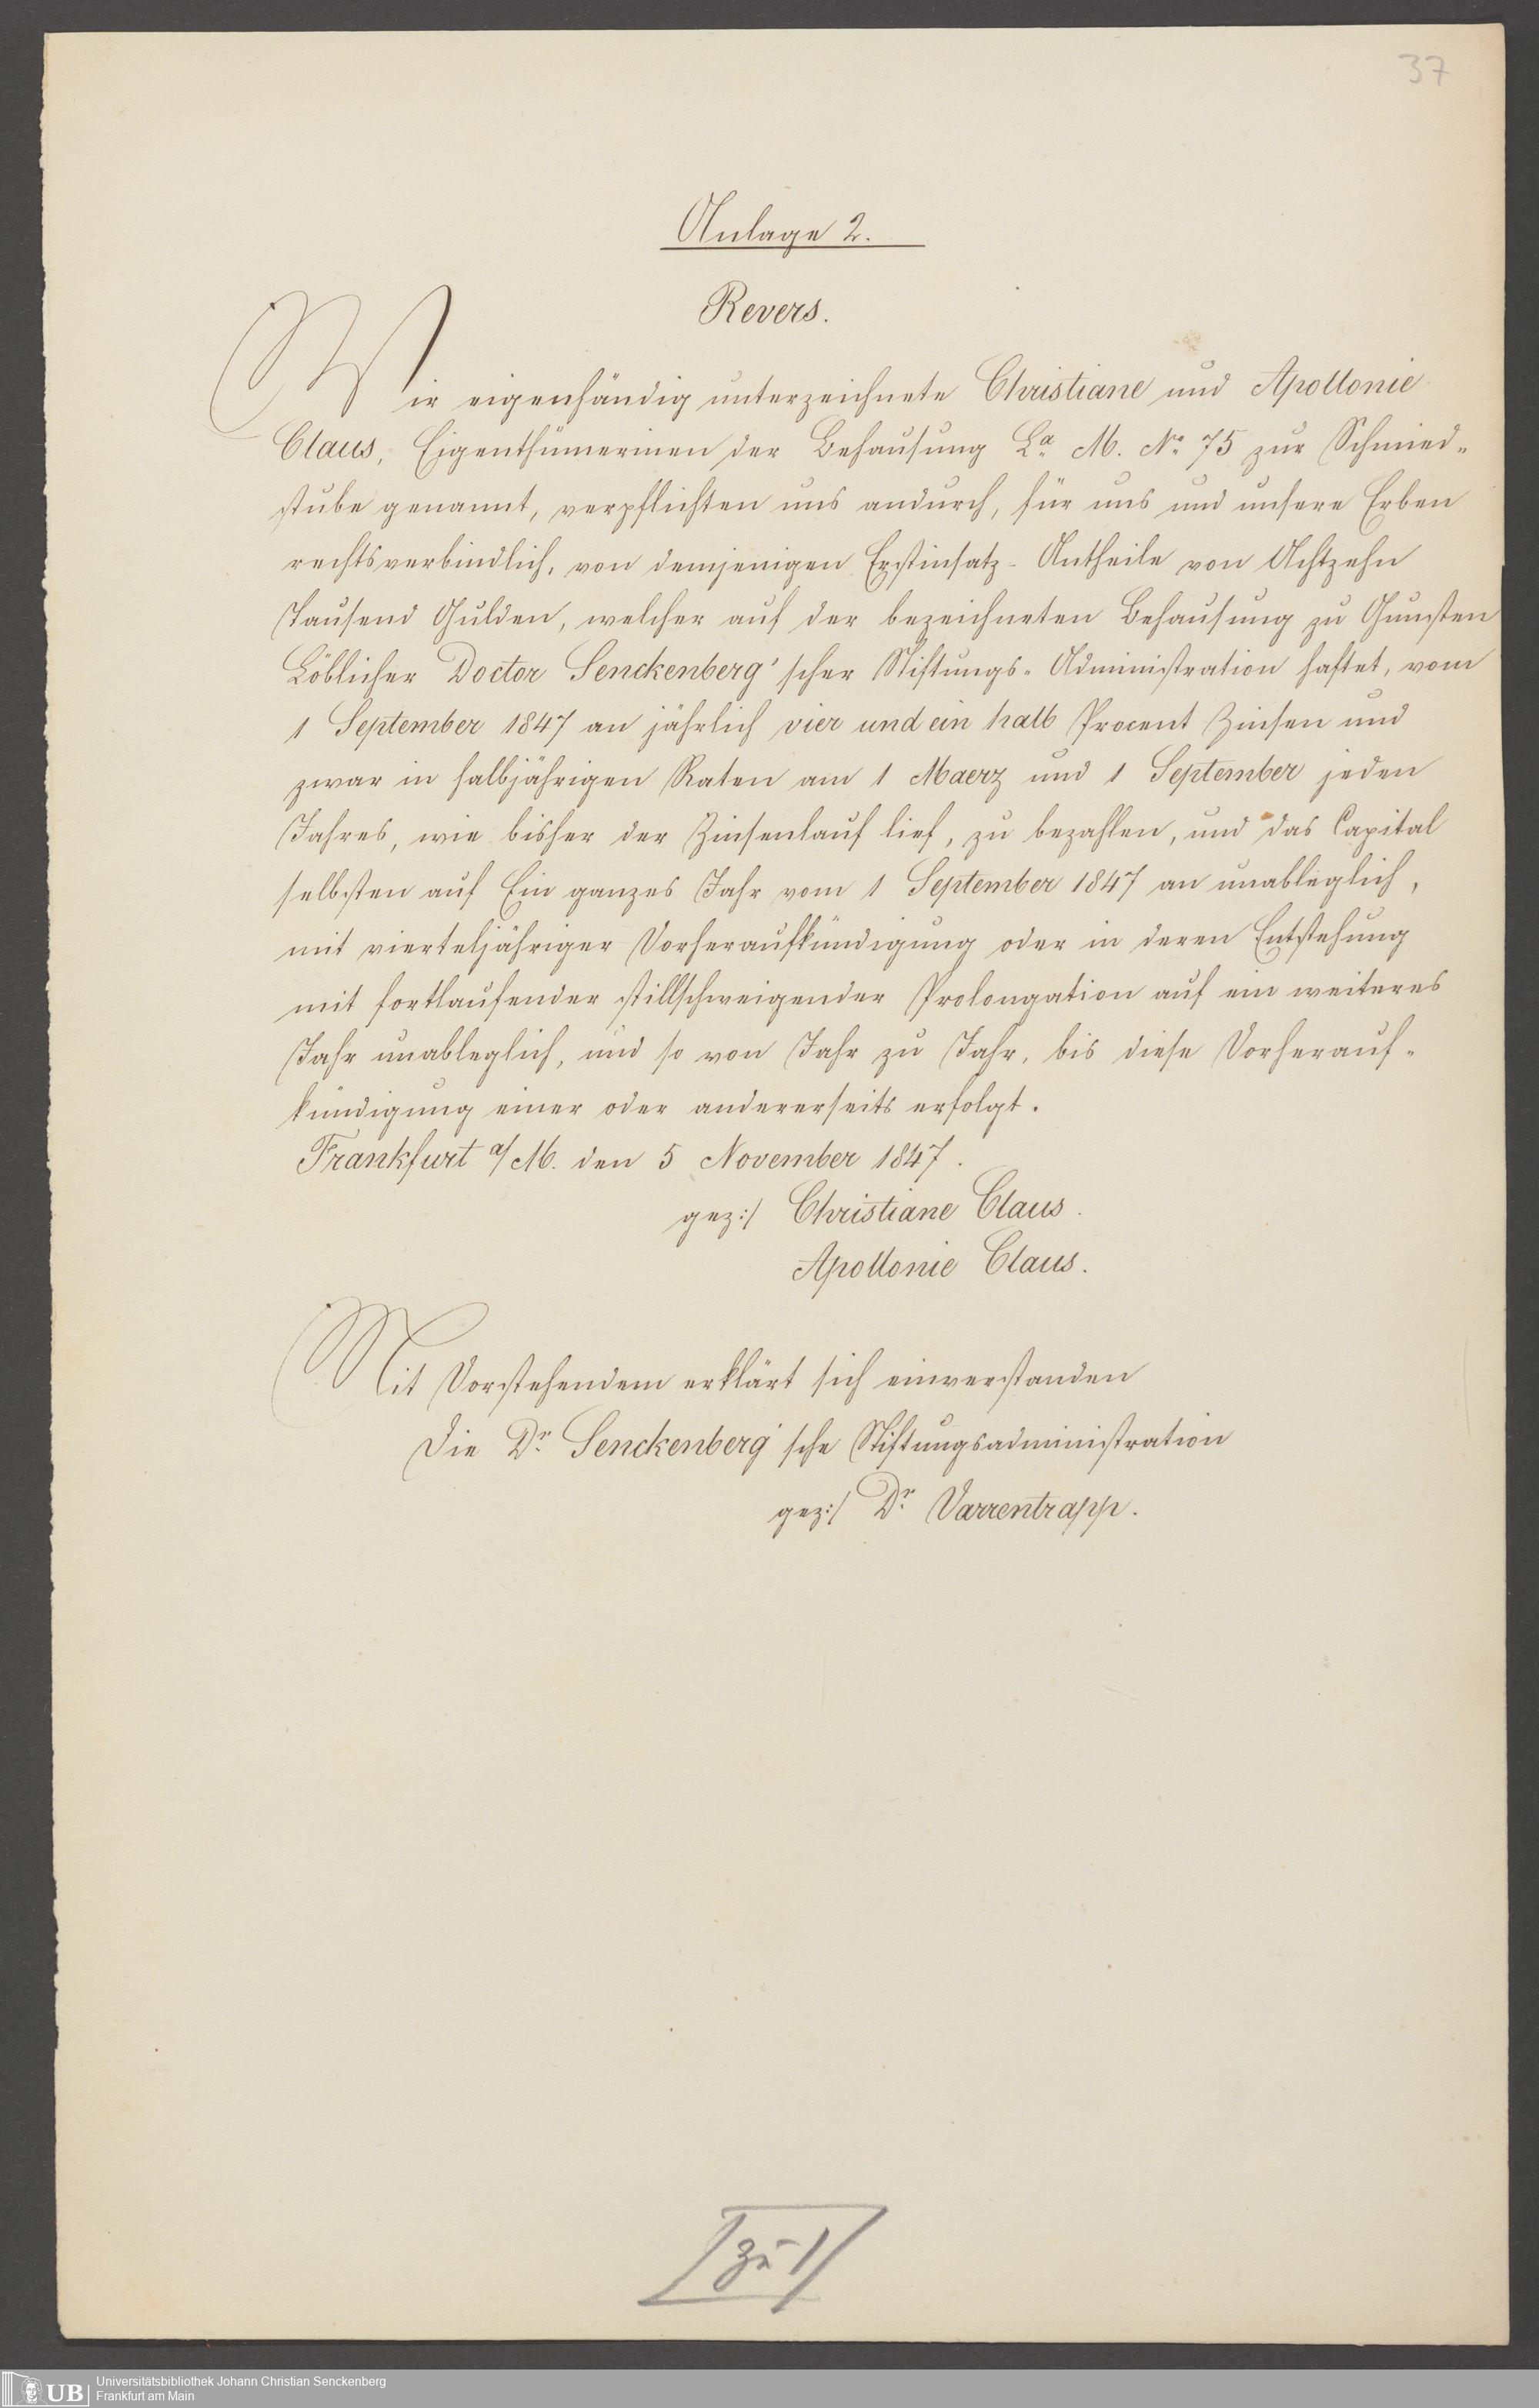 37
Anlage 2.
Revers.
Wir eigenhändig unterzeichnete Christiane und Apollonie
Claus, Eigenthümerinen der Behausung La. M. No. 75 zur Schmied-
stube genannt, verpflichten uns andurch, für uns und unsere Erben
rechtsverbindlich, von demjenigen Erstinsatz-Antheile von Achtzehn
Tausend Gulden, welcher auf der bezeichneten Behausung zu Gunsten
Löblicher Doctor Senckenberg'scher Stiftungs-Administration haftet, vom
1 September 1847 an jährlich vier und ein halb Procent Zinsen und
zwar in halbjährigen Raten am 1 Maerz und 1 September jeden
Jahres, wie bisher der Zinsenlauf lief, zu bezahlen, und das Capital
selbsten auf Ein ganzes Jahr vom 1 September 1847 an unableglich,
mit vierteljähriger Vorheraufkündigung oder in deren Entstehung
mit fortlaufender stillschweigender Prolongation auf ein weiteres
Jahr unableglich, und so von Jahr zu Jahr, bis diese Vorherauf-
kündigung einer oder andererseits erfolgt.
Frankfurt a/M. den 5 November 1847.
gez:/ Christiane Claus.
Apollonie Claus.
Mit Vorstehendem erklärt sich einverstanden
Die Dr. Senckenberg'sche Stiftungsadministration
gez:/ Dr. Varrentrapp.
zu 1
UB Universitätsbibliothek Johann Christian Senckenberg
Frankfurt am Main